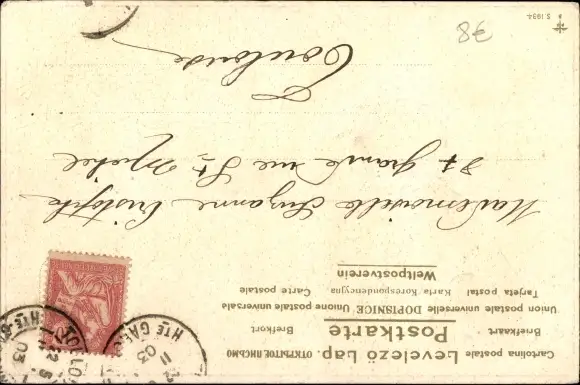 Cartolina postale Levelező Lap. ОТКРЫТОЕ ПИСЬМО
Briefkaart Postkarte Brefkort
Union postale universelle DOPISNICE Unione postale universale
Tarjeta postal Karta Korespondencyjna Carte postale
Weltpostverein
Mademoiselle Suzanne
grande rue St Michel
Toulouse
8€
S. 1934.
HTE GAR
11
03